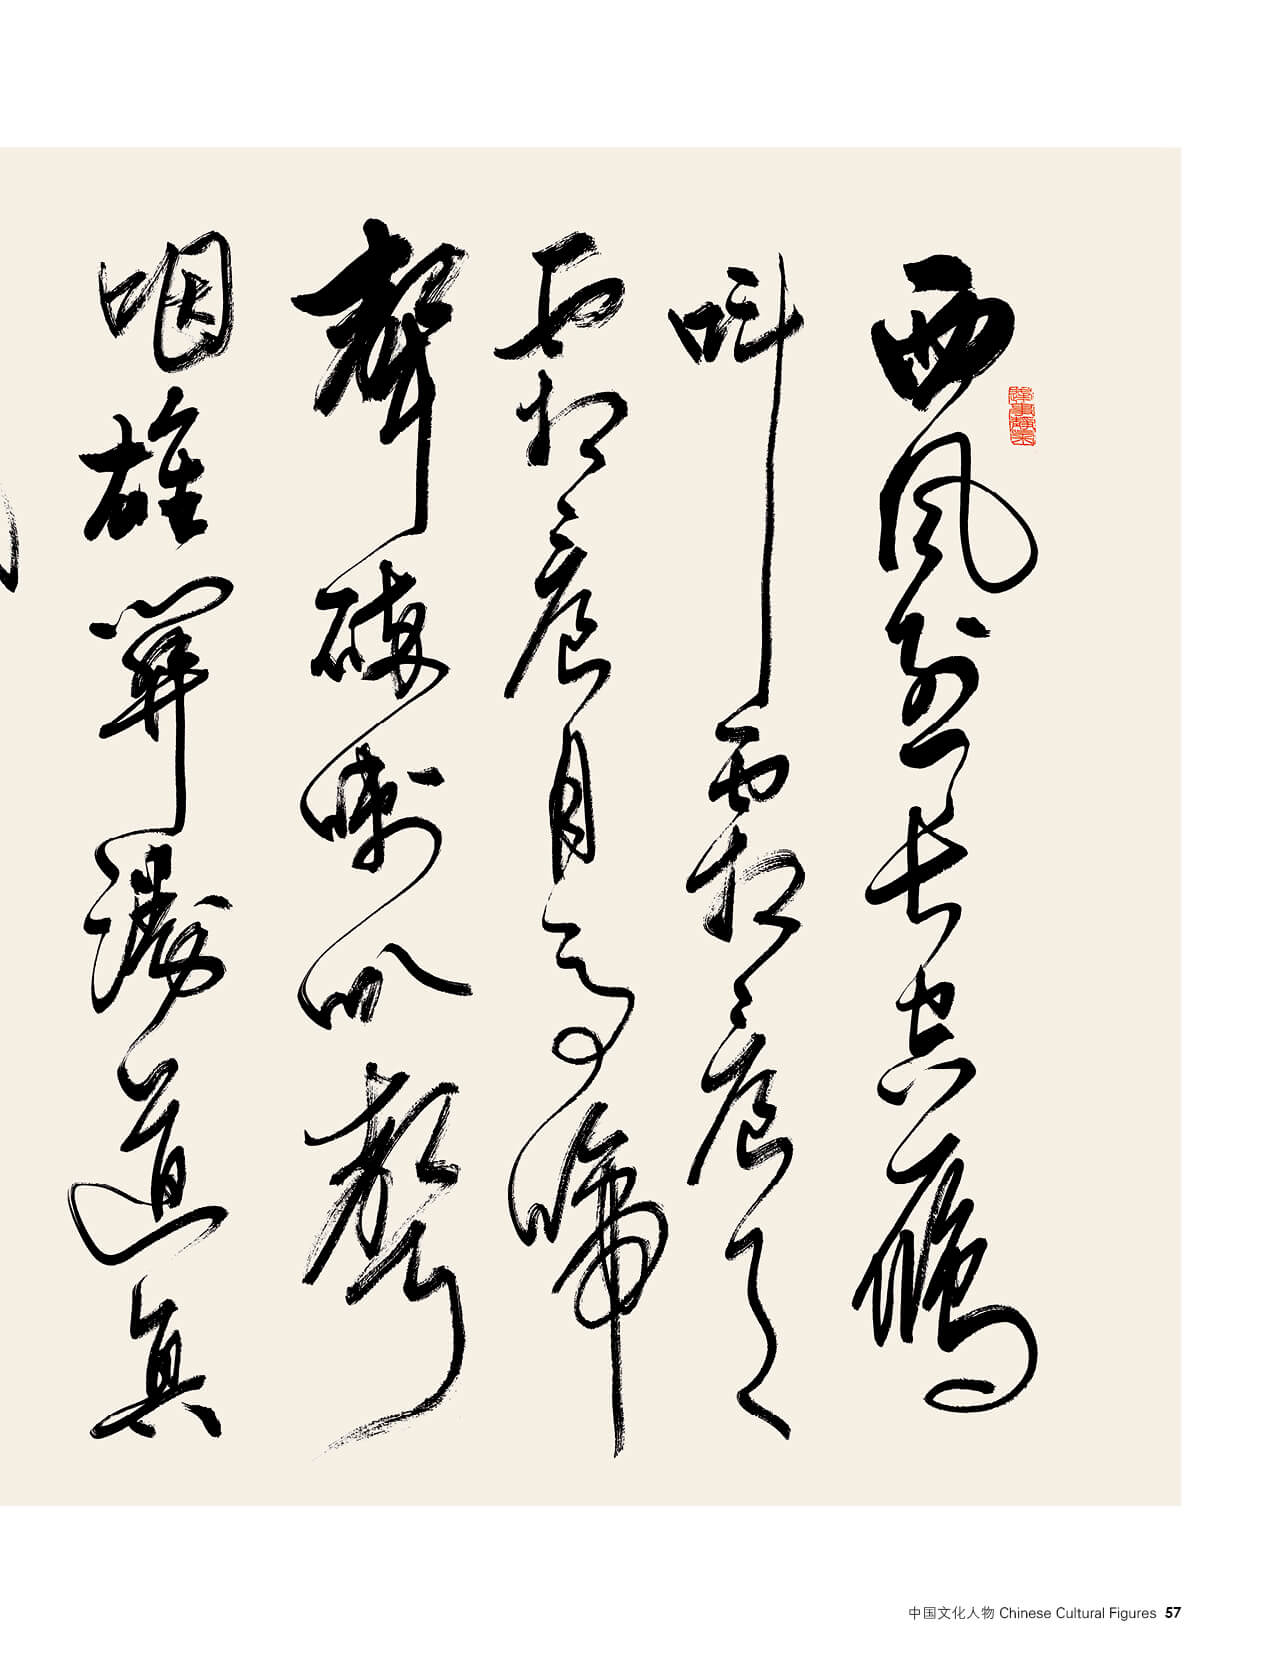 西风烈长空鴈
叫霜晨月
霜晨月马蹄
聲碎喇叭聲
咽雄關漫道真
中国文化人物 Chinese Cultural Figures 57